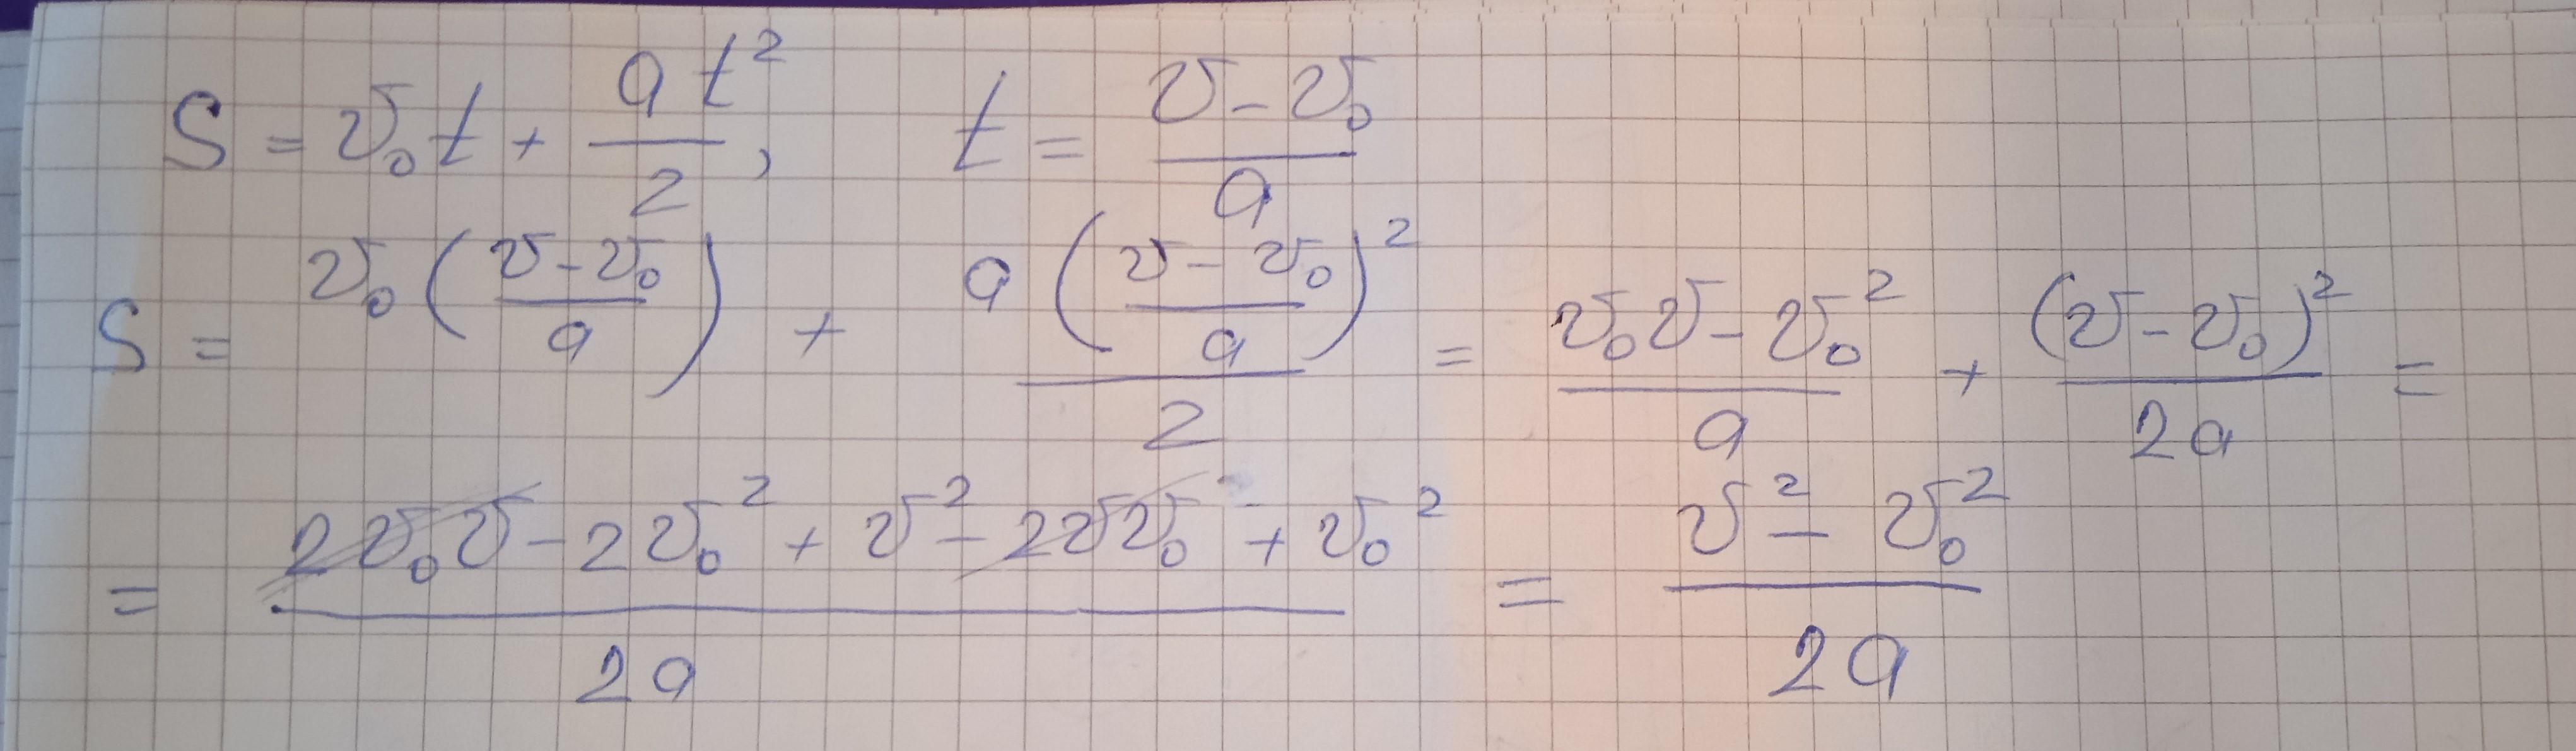 S = v₀t + at²/2, t = (v - v₀)/a
S = v₀((v - v₀)/a) + a((v - v₀)/a)²/2 = (v₀v - v₀²)/a + (v - v₀)²/2a =
= (2v₀v - 2v₀² + v² - 2vv₀ + v₀²)/2a = (v² - v₀²)/2a